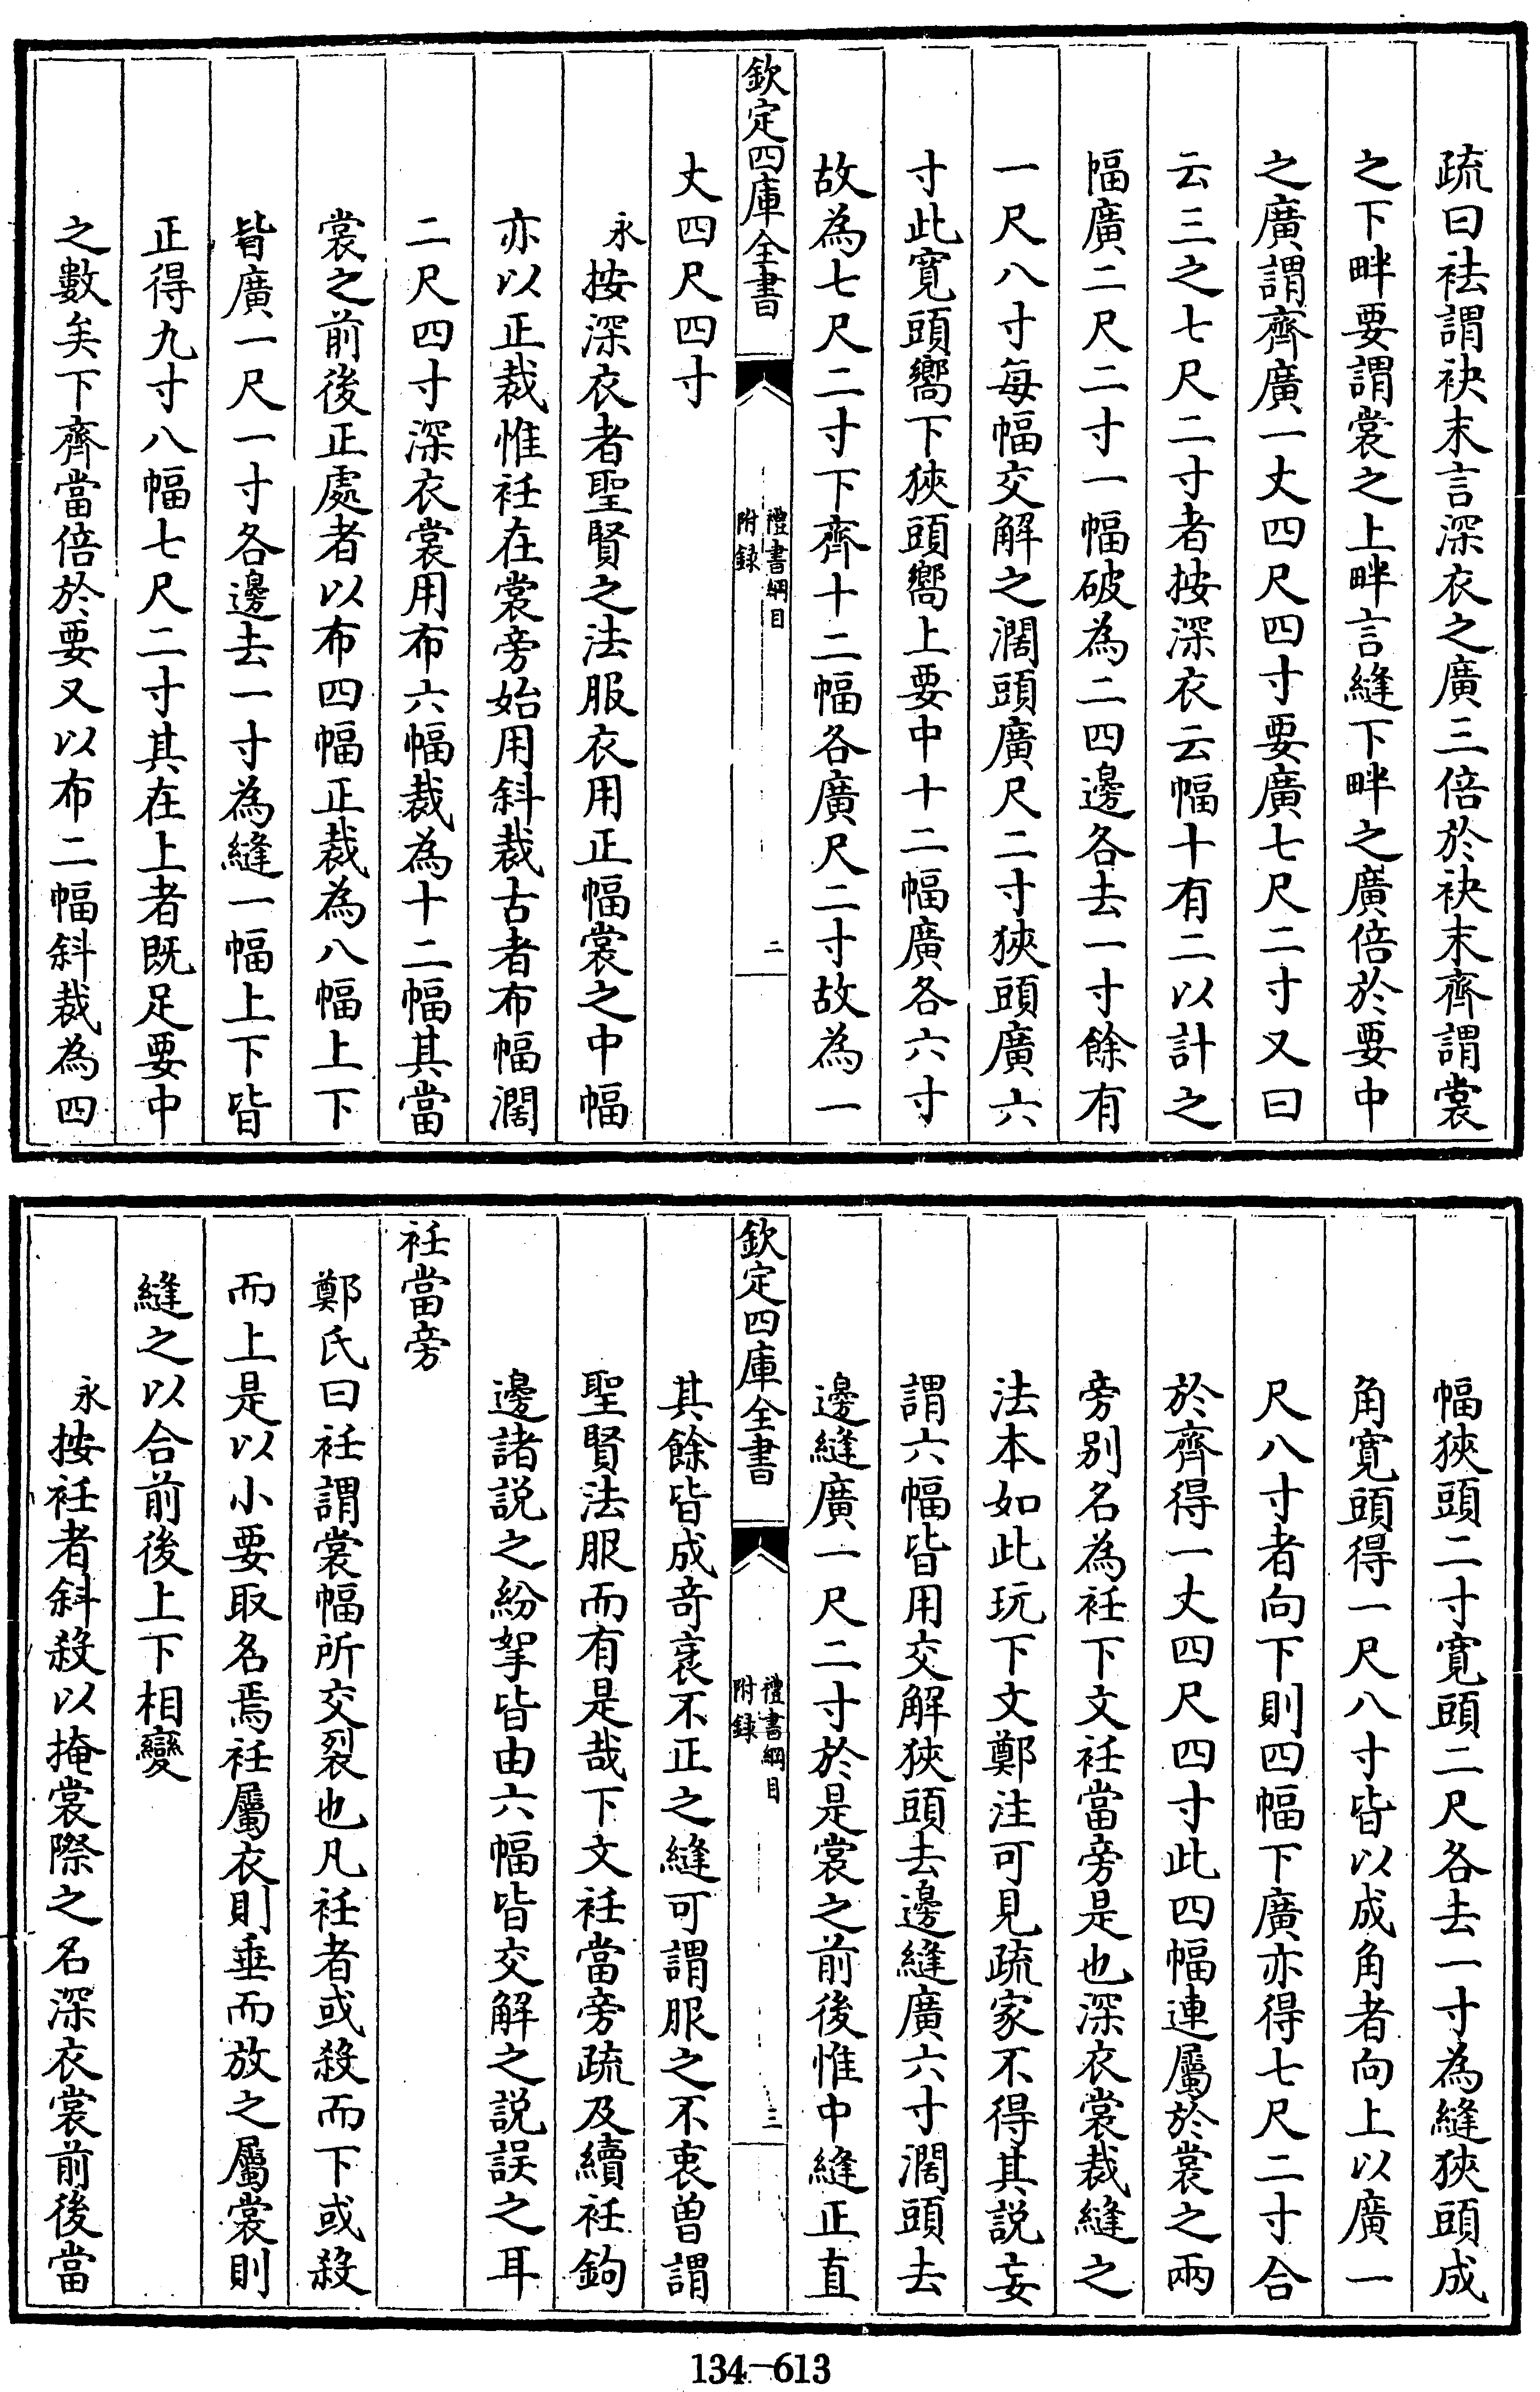 疏曰袪謂袂末言深衣之廣三倍於袂末齊謂裳
之下畔要謂裳之上畔言縫下畔之廣倍於要中
之廣謂齊廣一丈四尺四寸要廣七尺二寸又曰
云三之七尺二寸者按深衣云幅十有二以計之
幅廣二尺二寸一幅破為二四邊各去一寸餘有
一尺八寸每幅交解之濶頭廣尺二寸狹頭廣六
寸此寛頭嚮下狹頭嚮上要中十二幅廣各六寸
故為七尺二寸下齊十二幅各廣尺二寸故為一
欽定四庫全書
禮書綱目
附録
二
丈四尺四寸
永按深衣者聖賢之法服衣用正幅裳之中幅
亦以正裁惟衽在裳旁始用斜裁古者布幅濶
二尺四寸深衣裳用布六幅裁為十二幅其當
裳之前後正處者以布四幅正裁為八幅上下
皆廣一尺一寸各邊去一寸為縫一幅上下皆
正得九寸八幅七尺二寸其在上者既足要中
之數矣下齊當倍於要又以布二幅斜裁為四
幅狹頭二寸寛頭二尺各去一寸為縫狹頭成
角寛頭得一尺八寸皆以成角者向上以廣一
尺八寸者向下則四幅下廣亦得七尺二寸合
於齊得一丈四尺四寸此四幅連屬於裳之兩
旁别名為衽下文衽當旁是也深衣裳裁縫之
法本如此玩下文鄭注可見疏家不得其説妄
謂六幅皆用交解狹頭去邊縫廣六寸濶頭去
邊縫廣一尺二寸於是裳之前後惟中縫正直
欽定四庫全書
禮書綱目
附録
三
其餘皆成竒衺不正之縫可謂服之不衷曽謂
聖賢法服而有是哉下文衽當旁疏及續衽鉤
邊諸説之紛挐皆由六幅皆交解之説誤之耳
衽當旁
鄭氏曰衽謂裳幅所交裂也凡衽者或殺而下或殺
而上是以小要取名焉衽屬衣則垂而放之屬裳則
縫之以合前後上下相變
永按衽者斜殺以掩裳際之名深衣裳前後當
134-613